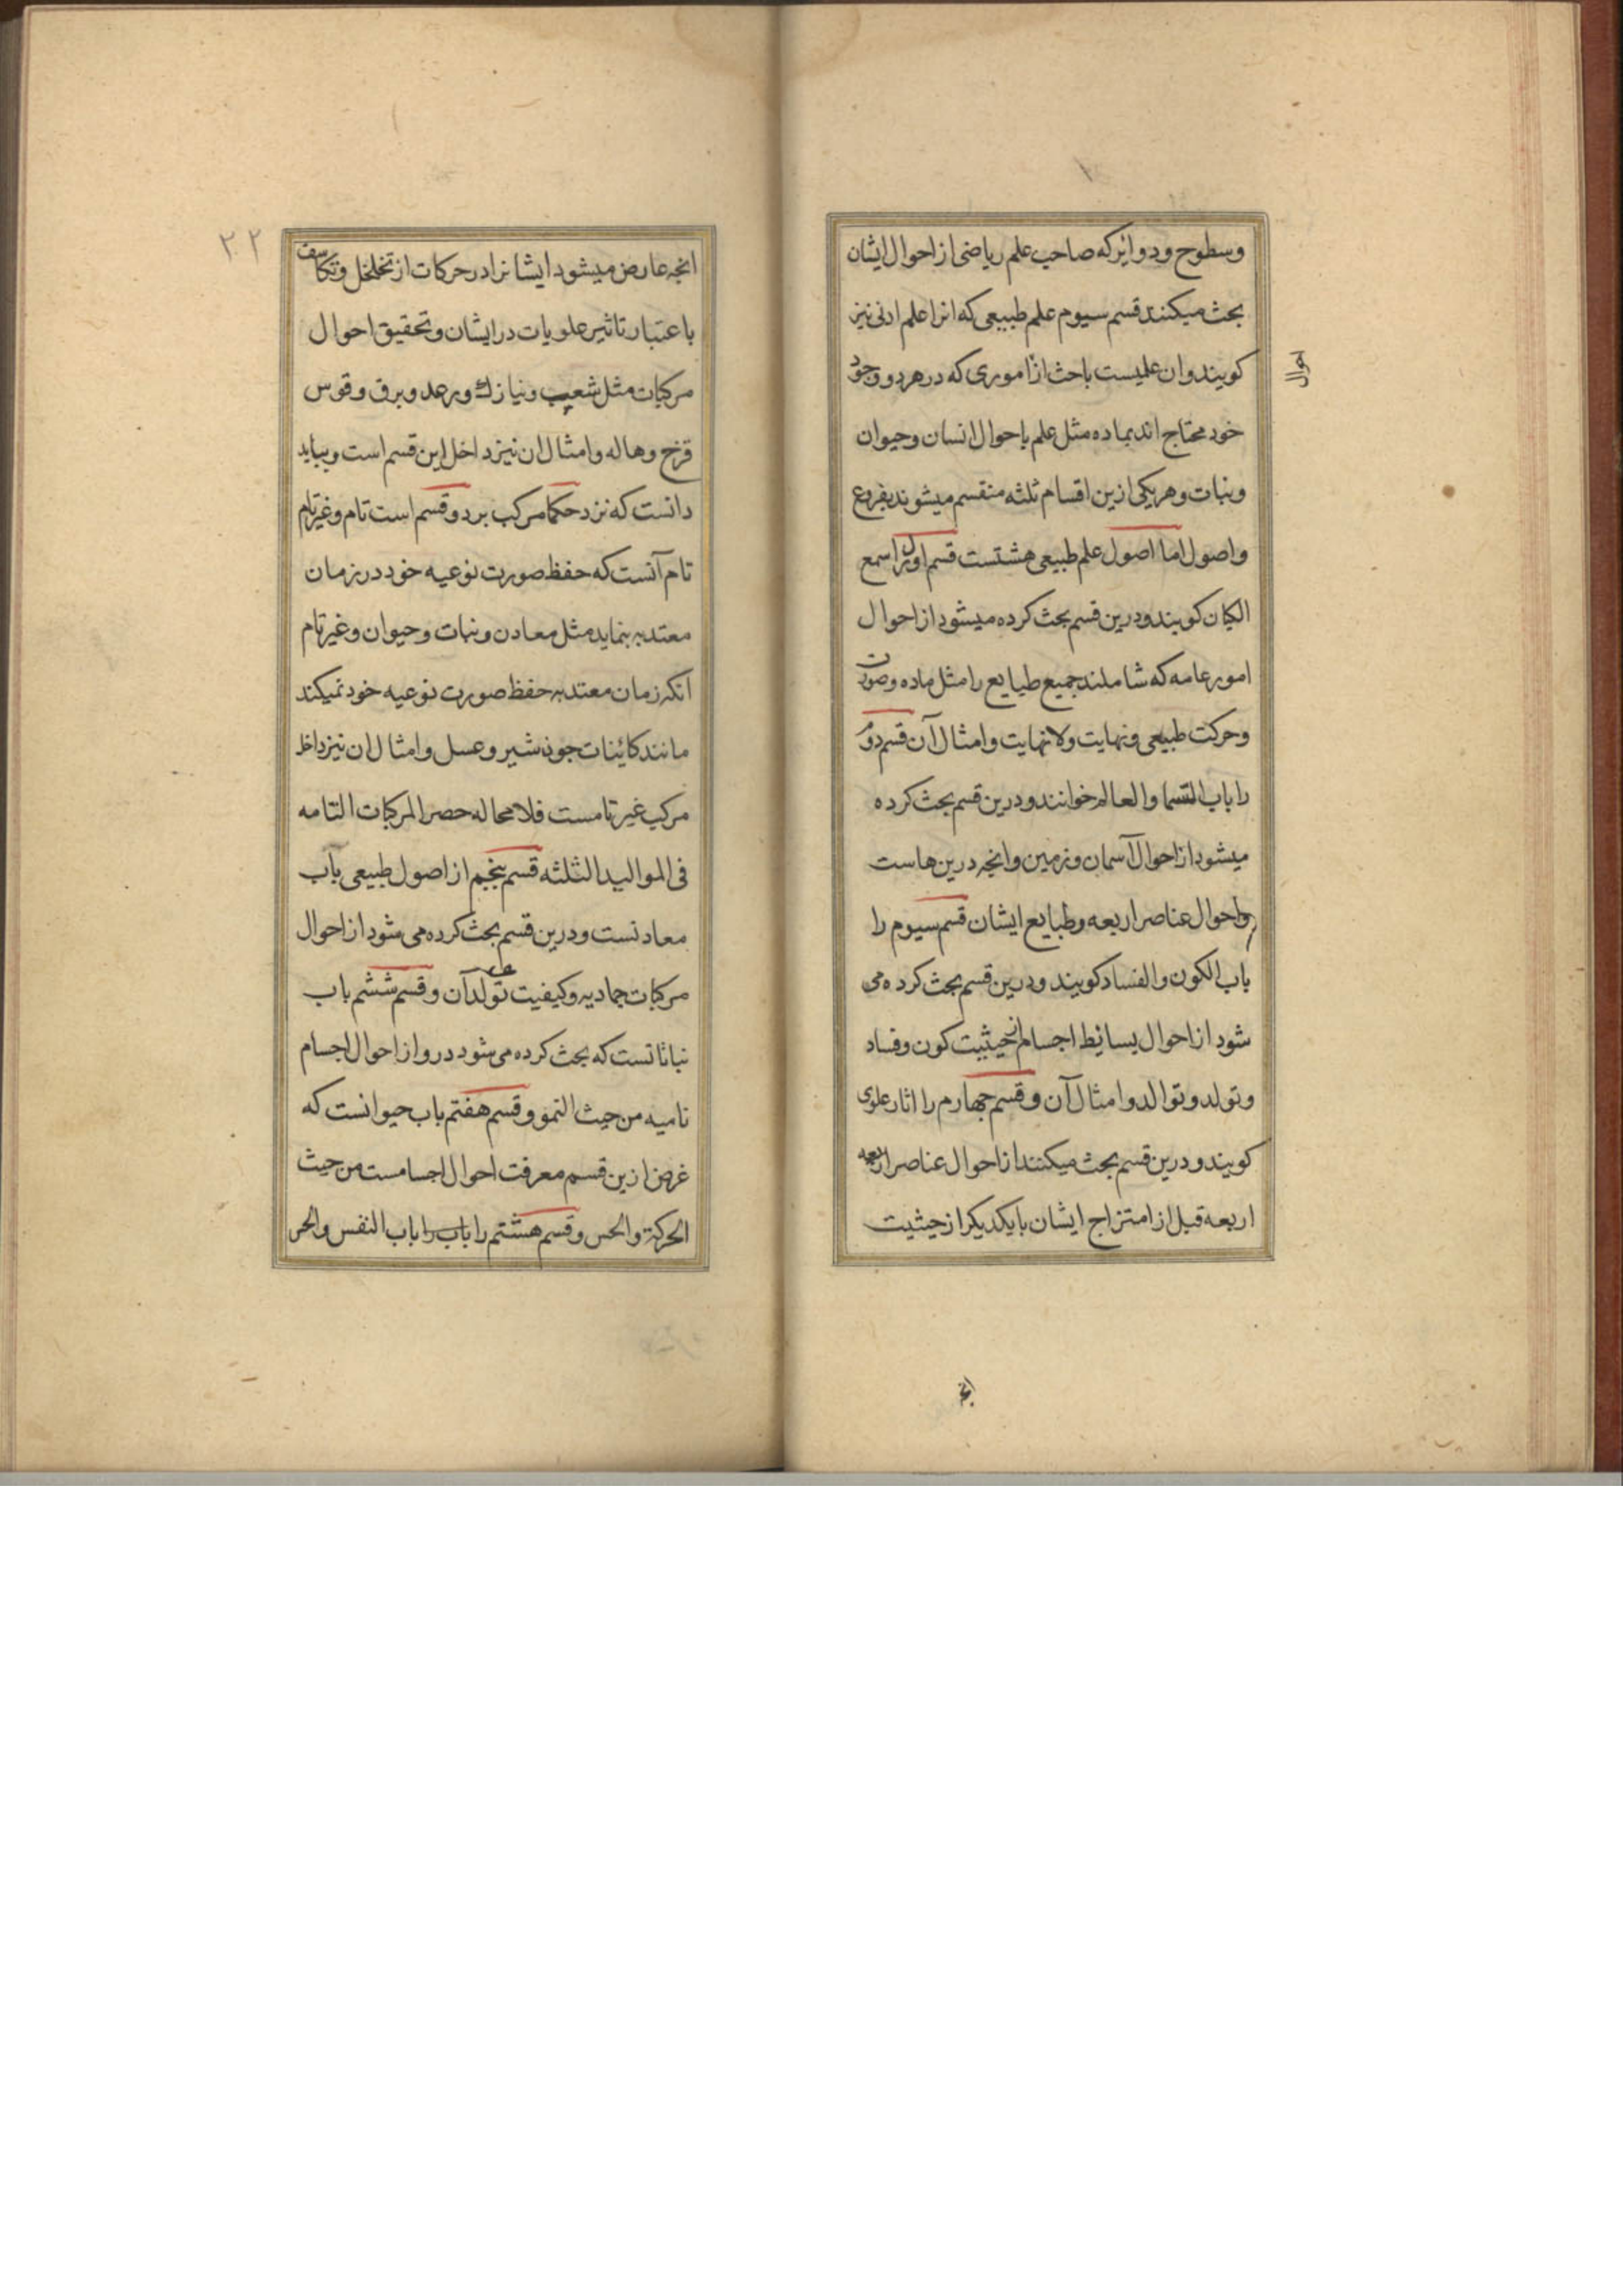 وسطوح ودوائر که صاحب علم ریاضی از احوال ایشان
بحث میکنند قسم سیوم علم طبیعی که انرا علم ادنی نیز
کویند وان علمیست باحث از اموری که در هر دو وجود
احوال
خود محتاج اند بماده مثل علم باحوال انسان وحیوان
ونبات وهریکی ازین اقسام ثلثه منقسم میشوند بفروع
واصول اما اصول علم طبیعی هشتست قسم اول را سمع
الکیان کویند ودرین قسم بحث کرده میشود از احوال
امور عامه که شاملند جمیع طبایع را مثل ماده وصورت
وحرکت طبیعی ونهایت ولانهایت وامثال آن قسم دوم
را باب السما والعالم خوانند ودرین قسم بحث کرده
میشود از احوال آسمان وزمین وانچه درین هاست
واحوال عناصر اربعه وطبایع ایشان قسم سیوم را
باب الکون والفساد کویند ودرین قسم بحث کرده می
شود از احوال بسائط اجسام از حیثیت کون وفساد
وتولد وتوالد وامثال آن وقسم چهارم را اثار علوی
کویند ودرین قسم بحث میکنند از احوال عناصر اربعه
اربعه قبل از امتزاج ایشان بایکدیکر از حیثیت
۲۲
انچه عارض میشود ایشانرا در حرکات از تخلخل وتکاسف
باعتبار تاثیر علویات در ایشان وتحقیق احوال
مرکبات مثل شعیب ونیازک ورعد وبرق وقوس
قزح وهاله وامثال ان نیز داخل این قسم است وبباید
دانست که نزد حکما مرکب بر دو قسم است تام وغیر تام
تام آنست که حفظ صورت نوعیه خود در زمان
معتد به بنماید مثل معادن ونبات وحیوان وغیر تام
آنکه زمان معتد به حفظ صورت نوعیه خود نمیکند
مانند کائنات جون شیر وعسل وامثال ان نیز داخل
مرکب غیر تامست فلا محاله حصر المرکبات التامه
فی الموالید الثلثه قسم پنجم از اصول طبیعی باب
معادنست ودرین قسم بحث کرده می شود از احوال
مرکبات جمادیه وکیفیت تولد آن وقسم ششم باب
نباتاتست که بحث کرده می شود درو از احوال اجسام
نامیه من حیث النمو وقسم هفتم باب حیوانست که
غرض ازین قسم معرفت احوال اجسامست من حیث
الحرکة والحس وقسم هشتم را باب را باب النفس والحس